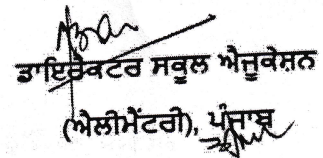 ਡਾਇਰੈਕਟਰ ਸਕੂਲ ਐਜੂਕੇਸ਼ਨ
(ਐਲੀਮੈਂਟਰੀ), ਪੰਜਾਬ